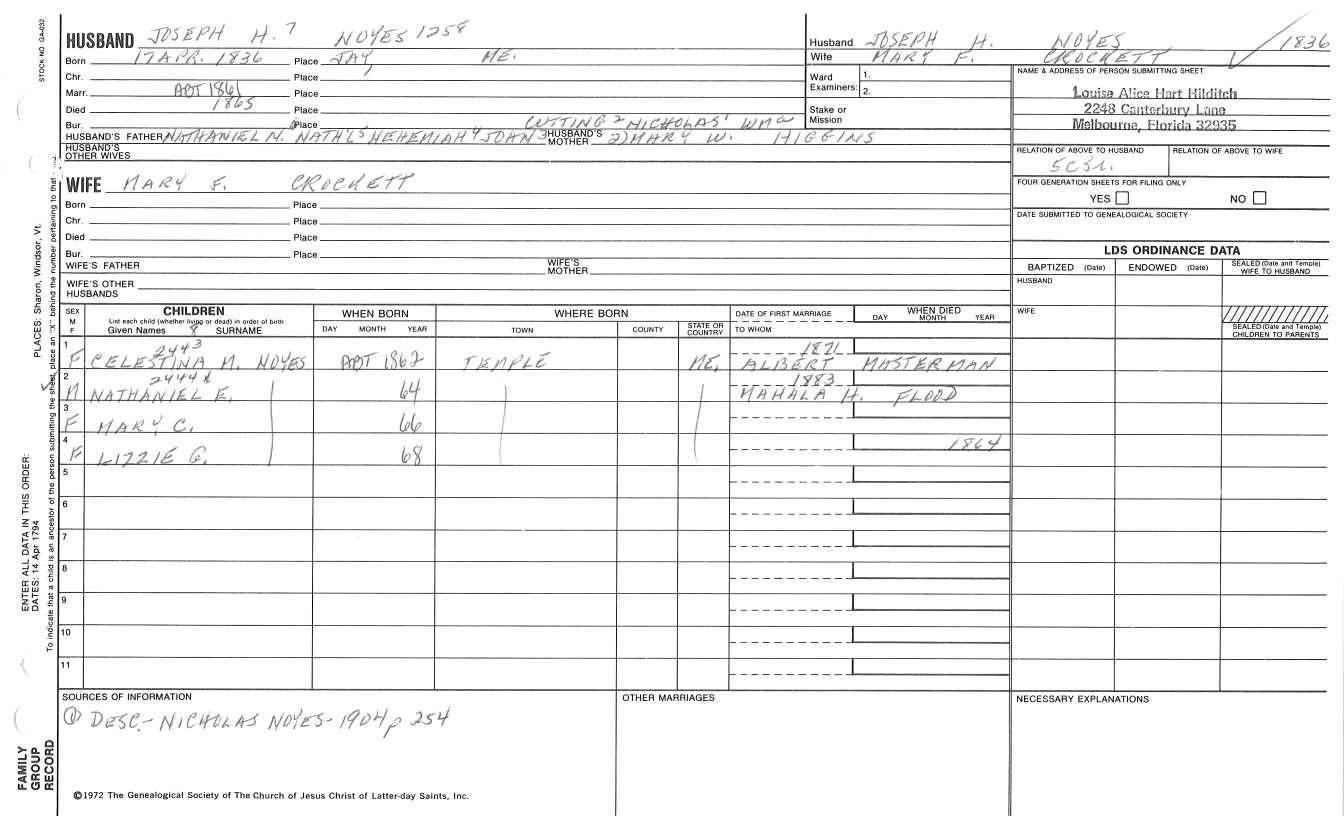 HUSBAND JOSEPH H. 7 NOYES 1258
Born 17 APR. 1836 Place JAY, ME.
Chr. Place
Marr. ABT 1861 Place
Died 1865 Place
Bur. Place CUTTING 2 NICHOLAS' WM
HUSBAND'S FATHER NATHANIEL M. 6 NATH'L 5 NEHEMIAH 4 JOHN 3 HUSBAND'S MOTHER 2) MARY W. HIGGINS
HUSBAND'S OTHER WIVES
Husband JOSEPH H. NOYES 1836
Wife MARY F. CROCKETT
Ward Examiners: 1.
2.
Stake or Mission
NAME & ADDRESS OF PERSON SUBMITTING SHEET
Louise Alice Hart Hilditch
2248 Canterbury Lane
Melbourne, Florida 32935
RELATION OF ABOVE TO HUSBAND RELATION OF ABOVE TO WIFE
5C3r.
FOUR GENERATION SHEETS FOR FILING ONLY
YES NO
DATE SUBMITTED TO GENEALOGICAL SOCIETY
WIFE MARY F. CROCKETT
Born Place
Chr. Place
Died Place
Bur. Place
WIFE'S FATHER WIFE'S MOTHER
WIFE'S OTHER HUSBANDS
LDS ORDINANCE DATA
BAPTIZED (Date) ENDOWED (Date) SEALED (Date and Temple) WIFE TO HUSBAND
HUSBAND
WIFE
SEALED (Date and Temple) CHILDREN TO PARENTS
SEX M F CHILDREN WHEN BORN WHERE BORN DATE OF FIRST MARRIAGE WHEN DIED
List each child (whether living or dead) in order of birth
Given Names 8 SURNAME DAY MONTH YEAR TOWN COUNTY STATE OR COUNTRY TO WHOM DAY MONTH YEAR
1 2443 1871
F CELESTINA M. NOYES ABT 1862 TEMPLE ME. ALBERT MASTERMAN
2 2444 x 1883
M NATHANIEL E. 64 MAHALA H. FLOOD
3
F MARY C. 66
4 1864
F LIZZIE G. 68
5
6
7
8
9
10
11
SOURCES OF INFORMATION
① DESC.- NICHOLAS NOYES-1904 p 254
OTHER MARRIAGES
NECESSARY EXPLANATIONS
©1972 The Genealogical Society of The Church of Jesus Christ of Latter-day Saints, Inc.
STOCK NO. GA-032
PLACES: Sharon, Windsor, Vt.
ENTER ALL DATA IN THIS ORDER:
DATES: 14 Apr 1794
To indicate that a child is an ancestor of the person submitting the sheet, place an "X" behind the number pertaining to that
FAMILY GROUP RECORD